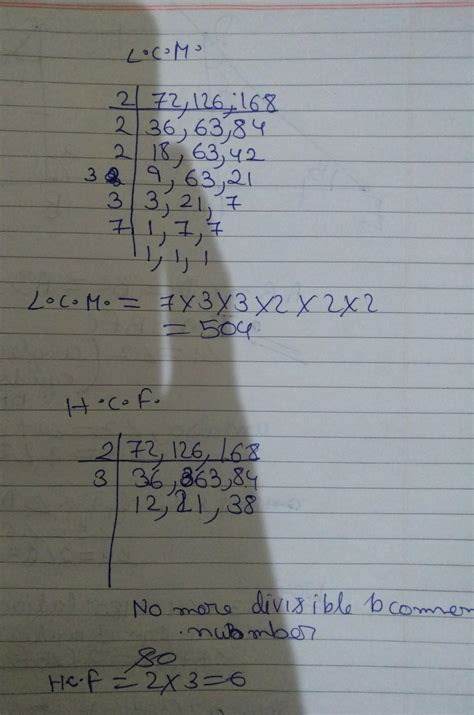 L.C.M.
2 | 72, 126, 168
2 | 36, 63, 84
2 | 18, 63, 42
3 | 9, 63, 21
3 | 3, 21, 7
7 | 1, 7, 7
1, 1, 1
L.C.M. = 7×3×3×2×2×2
= 504
H.C.F.
2 | 72, 126, 168
3 | 36, 63, 84
12, 21, 38
No more divisible b common
numbor
H.C.F = 2×3=6